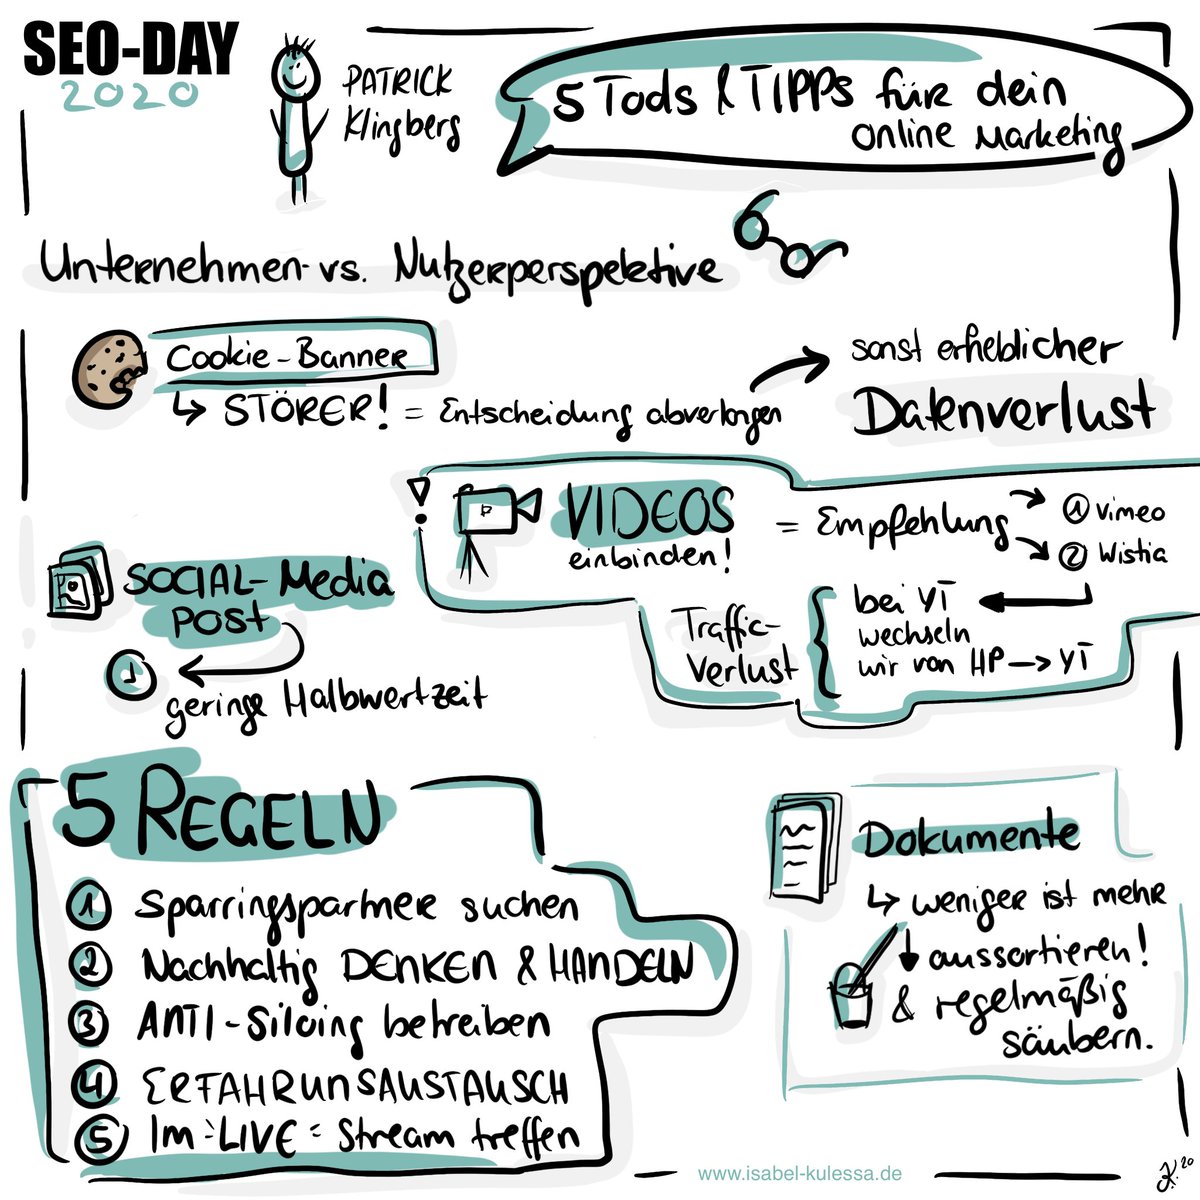 SEO-DAY
2020
PATRICK
Klingberg
5 Tools & TIPPs für dein
Online Marketing
Unternehmen- vs. Nutzerperspektive
Cookie-Banner
↳ STÖRER! = Entscheidung abverlangen
sonst erheblicher
Datenverlust
! VIDEOS
einbinden!
= Empfehlung
1 Vimeo
2 Wistia
Traffic-
Verlust
bei YT
wechseln
wir von HP → YT
SOCIAL-Media
POST
geringe Halbwertzeit
5 REGELN
1 Sparringspartner suchen
2 Nachhaltig DENKEN & HANDELN
3 ANTI-Siloing betreiben
4 ERFAHRUNSAUSTAUSCH
5 Im LIVE = Stream treffen
Dokumente
↳ weniger ist mehr
↓ aussortieren!
& regelmäßig
säubern.
www.isabel-kulessa.de
20